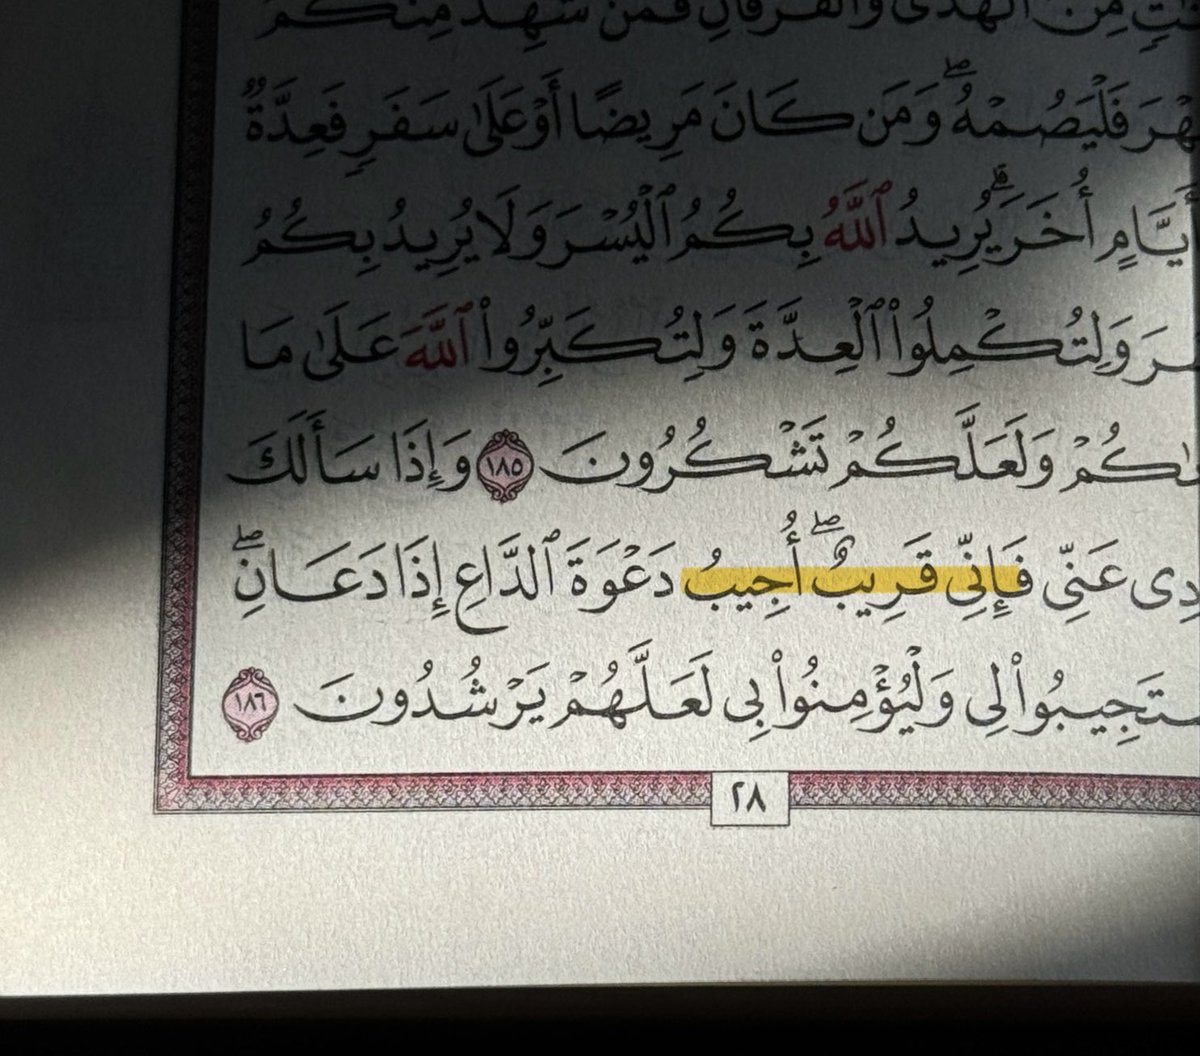 مِّنَ ٱلْهُدَىٰ وَٱلْفُرْقَانِ فَمَن شَهِدَ مِنكُمُ
فَلْيَصُمْهُ ۖ وَمَن كَانَ مَرِيضًا أَوْ عَلَىٰ سَفَرٍ فَعِدَّةٌ
أَيَّامٍ أُخَرَ ۗ يُرِيدُ ٱللَّهُ بِكُمُ ٱلْيُسْرَ وَلَا يُرِيدُ بِكُمُ
وَلِتُكْمِلُوا۟ ٱلْعِدَّةَ وَلِتُكَبِّرُوا۟ ٱللَّهَ عَلَىٰ مَا
وَلَعَلَّكُمْ تَشْكُرُونَ ١٨٥ وَإِذَا سَأَلَكَ
عَنِّى فَإِنِّى قَرِيبٌ ۖ أُجِيبُ دَعْوَةَ ٱلدَّاعِ إِذَا دَعَانِ ۖ
لِى وَلْيُؤْمِنُوا۟ بِى لَعَلَّهُمْ يَرْشُدُونَ ١٨٦
٢٨